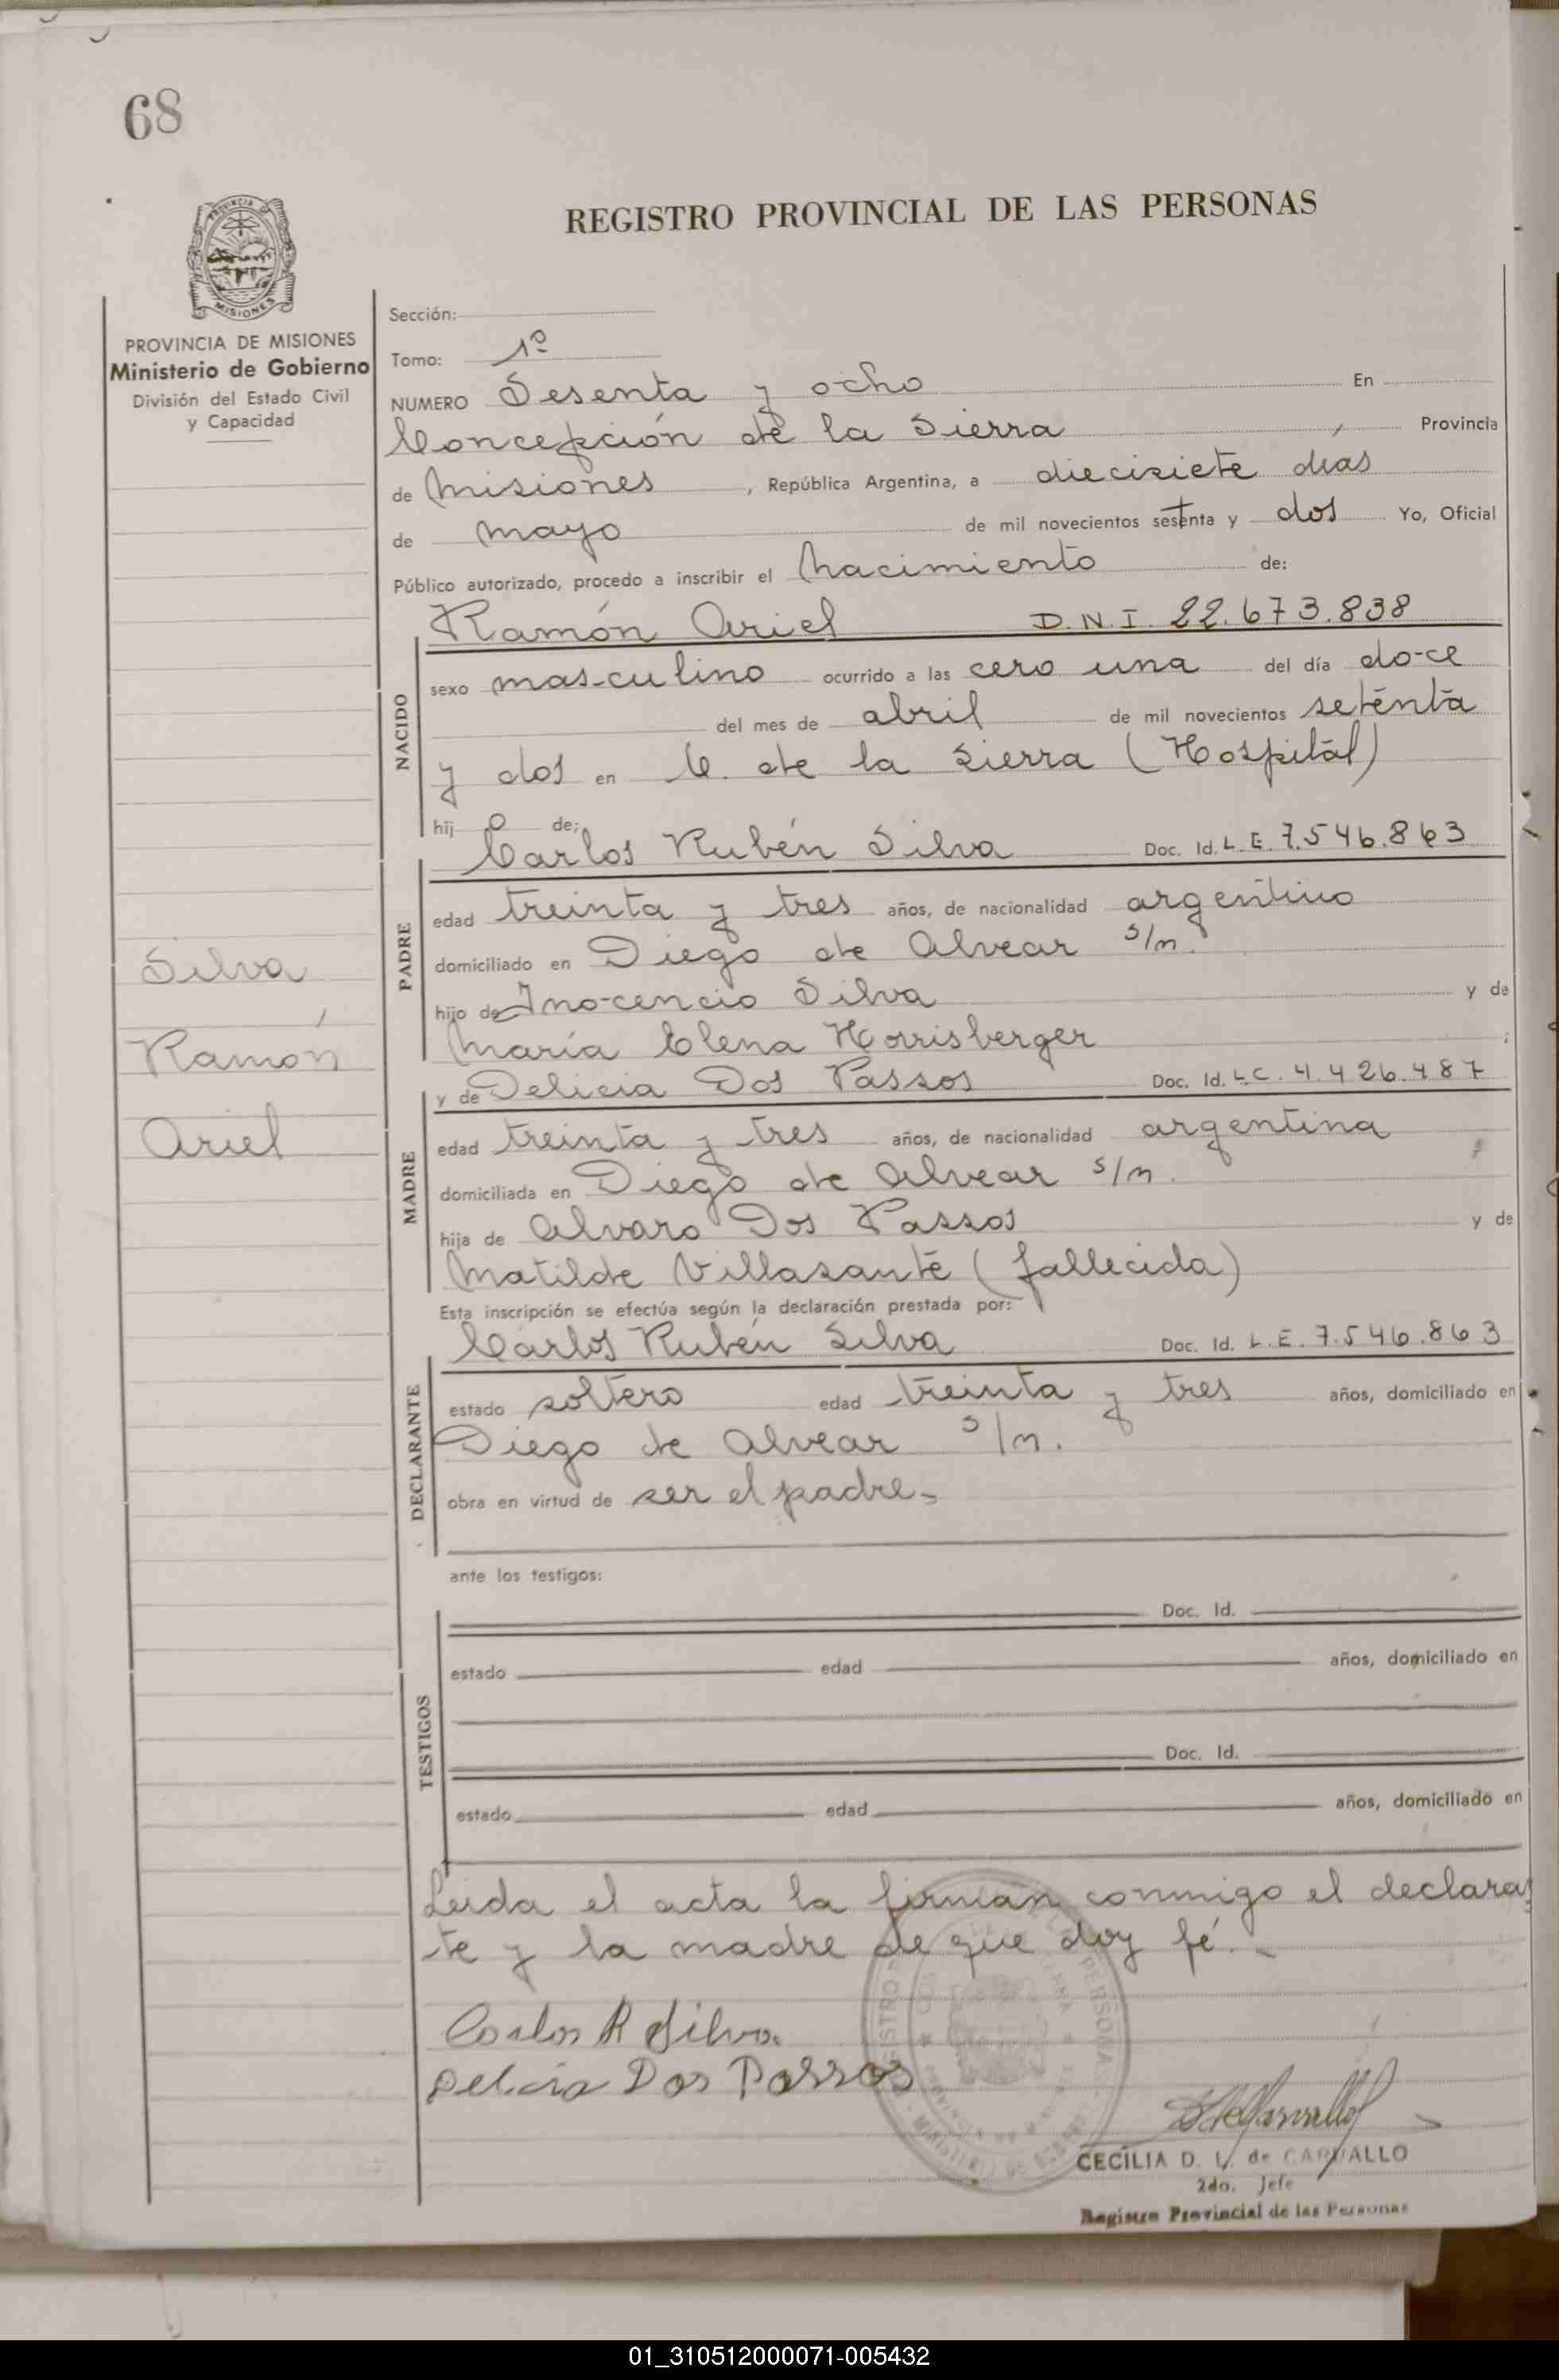 68
REGISTRO PROVINCIAL DE LAS PERSONAS
PROVINCIA DE
MISIONES
PROVINCIA DE MISIONES
Ministerio de Gobierno
División del Estado Civil
y Capacidad
Silva
Ramón
Ariel
Sección:
Tomo: 1º
NUMERO Sesenta y ocho En
Concepción de la Sierra, Provincia
de Misiones, República Argentina, a diecisiete dias
de mayo de mil novecientos setenta y dos Yo, Oficial
Público autorizado, procedo a inscribir el Nacimiento de:
Ramón Ariel D.N.I. 22.673.838
NACIDO
sexo masculino ocurrido a las cero una del día doce
del mes de abril de mil novecientos setenta
y dos en C. de la Sierra (Hospital)
hijo de:
PADRE
Carlos Rubén Silva Doc. Id. L.E. 7.546.863
edad treinta y tres años, de nacionalidad argentino
domiciliado en Diego de Alvear s/n.
hijo de Inocencio Silva y de
María Elena Horrisberger ;
MADRE
y de Delicia Dos Passos Doc. Id. L.C. 4.426.487
edad treinta y tres años, de nacionalidad argentina
domiciliada en Diego de Alvear s/n.
hija de Alvaro Dos Passos y de
Matilde Villasante (fallecida)
Esta inscripción se efectúa según la declaración prestada por:
DECLARANTE
Carlos Rubén Silva Doc. Id. L.E. 7.546.863
estado soltero edad treinta y tres años, domiciliado en
Diego de Alvear s/n.
obra en virtud de ser el padre.-
ante los testigos:
TESTIGOS
Doc. Id.
estado edad años, domiciliado en
Doc. Id.
estado edad años, domiciliado en
Leida el acta la firman conmigo el declaran
te y la madre de que doy fé.-
Carlos R Silva
Delicia Dos Passos
CECILIA D. L. de CARVALLO
2do. Jefe
Registro Provincial de las Personas
01_310512000071-005432